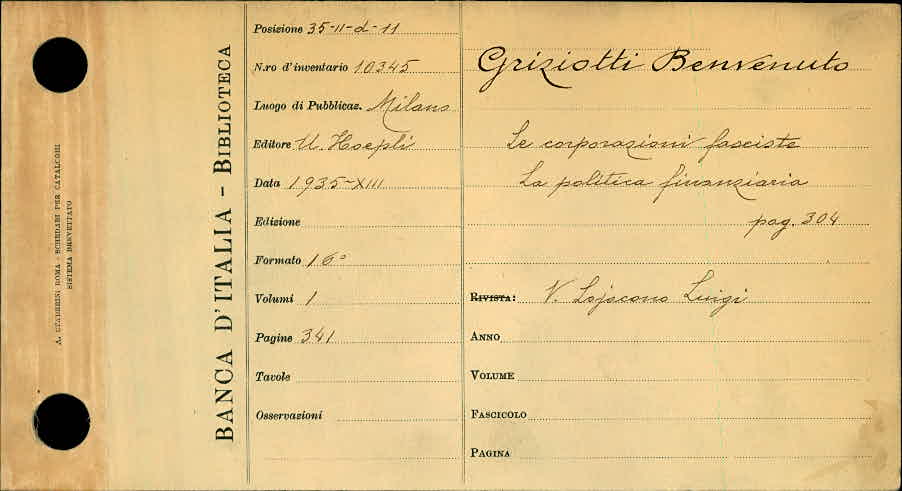 A. STADERINI ROMA - SCHEDARI PER CATALOGHI
SISTEMA BREVETTATO
BANCA D'ITALIA - BIBLIOTECA
Posizione 35-11-d-11
N.ro d'inventario 10345
Luogo di Pubblicaz. Milano
Editore U. Hoepli
Data 1935-XIII
Edizione
Formato 16°
Volumi 1
Pagine 341
Tavole
Osservazioni
Griziotti Benvenuto
Le corporazioni fasciste
La politica finanziaria
pag. 304
RIVISTA: V. Lojacono Luigi
ANNO
VOLUME
FASCICOLO
PAGINA